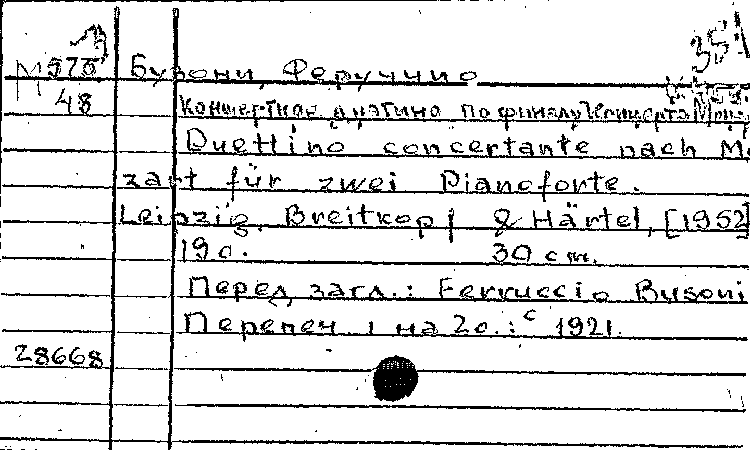 351
М 575 Бузони, Феруччио
48 Концертное дуэтино по финалу Концерта Моца
Duettino concertante nach Mo
zart für zwei Pianoforte.
Leipzig, Breitkopf & Härtel, [1952]
19 с. 30 cm.
Перед загл.: Ferruccio Busoni
Перепеч. 1 на 2 с.: с 1921.
28668